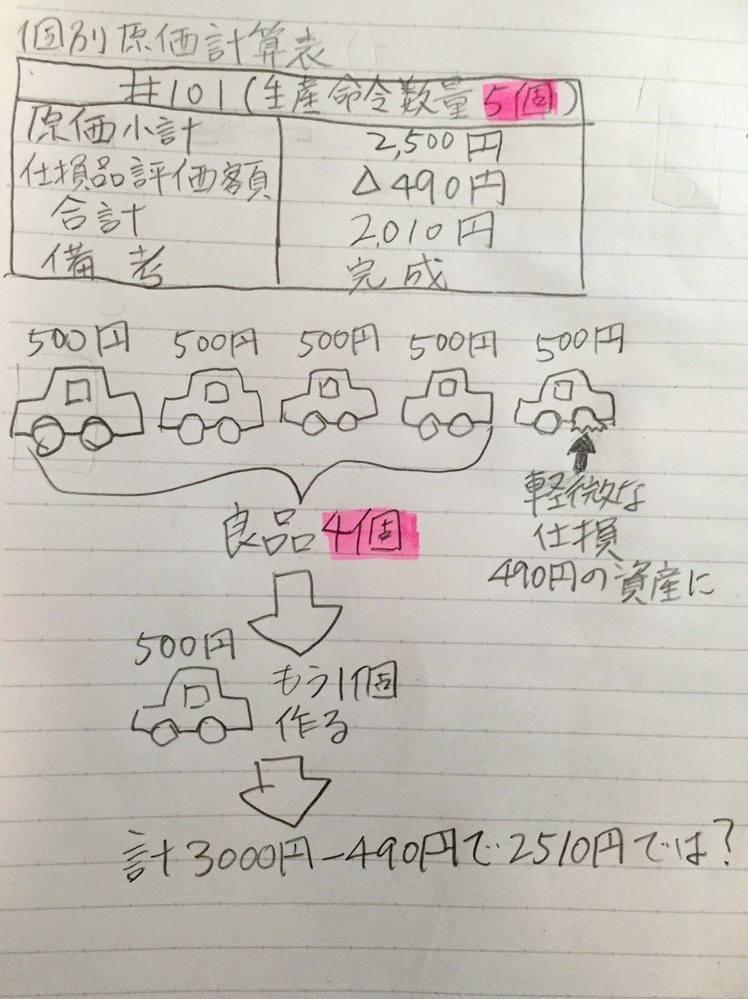 個別原価計算表
#101(生産命令数量5個)
原価小計 2,500円
仕損品評価額 △490円
合計 2,010円
備考 完成
500円 500円 500円 500円 500円
軽微な
仕損
490円の資産に
良品4個
500円
もう1個
作る
計3000円-490円で2510円では?